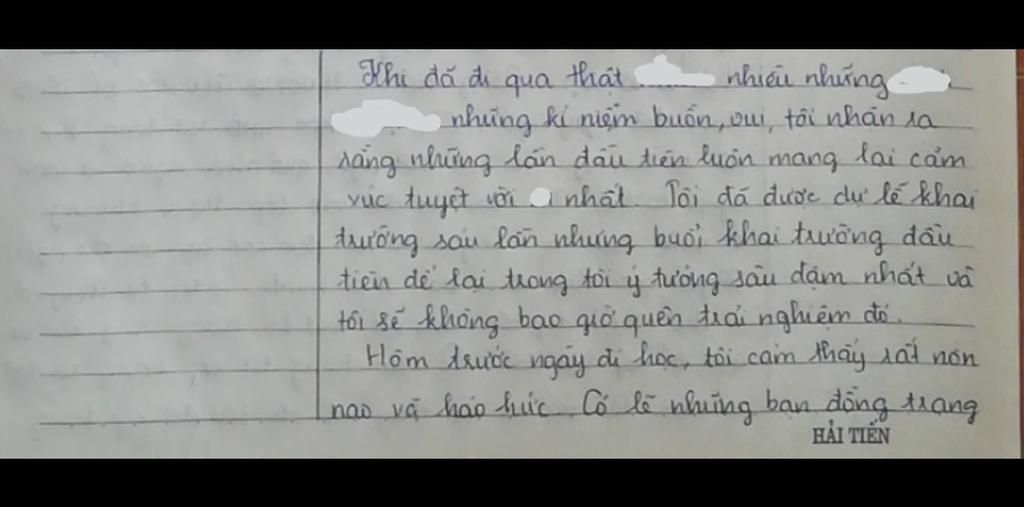 Khi đã đi qua thật nhiều những
những kỉ niệm buồn, vui, tôi nhận ra
rằng những lần đầu tiên luôn mang lại cảm
xúc tuyệt vời nhất. Tôi đã được dự lễ khai
trường sáu lần nhưng buổi khai trường đầu
tiên để lại trong tôi ý tưởng sâu đậm nhất và
tôi sẽ không bao giờ quên trải nghiệm đó.
Hôm trước ngày đi học, tôi cảm thấy rất nôn
nao và háo hức. Có lẽ những bạn đồng trang
HẢI TIẾN